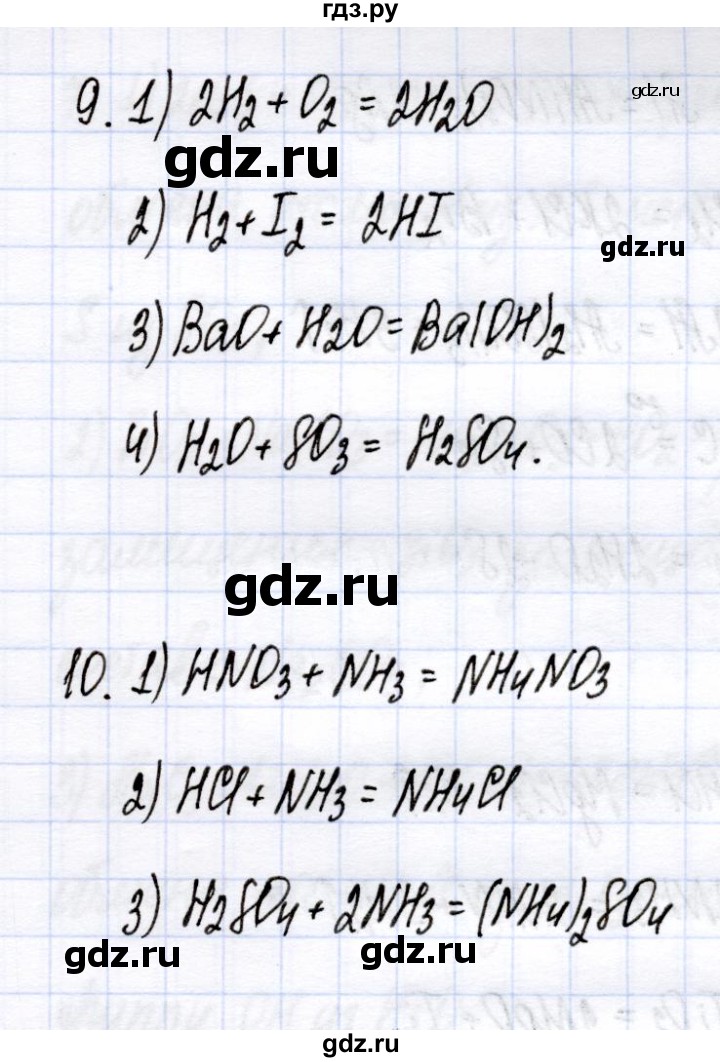 гдз.ру
gdz.ru
9. 1) 2H₂ + O₂ = 2H₂O
gdz.ru
2) H₂ + I₂ = 2HI
gdz.ru
3) BaO + H₂O = Ba(OH)₂
4) H₂O + SO₃ = H₂SO₄.
gdz.ru
10. 1) HNO₃ + NH₃ = NH₄NO₃
2) HCl + NH₃ = NH₄Cl
3) H₂SO₄ + 2NH₃ = (NH₄)₂SO₄
gdz.ru
gdz.ru
гдз.ру